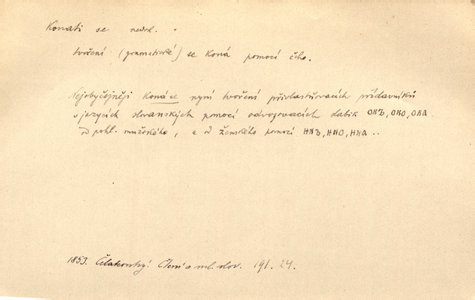 Konati se nedok.
tvoření (gramatické) se koná pomocí čeho.
Nejobyčejněji koná se nyní tvoření přivlastňovacích přídavníků
v jazycích slovanských pomocí odvozovacích slabik ОВЪ, ОВО, ОВА
od pohl. mužského, a od ženského pomocí ИНЪ, ИНО, ИНА ..
1853. Čelakovský: Čtení o ml. slov. 191. 24.